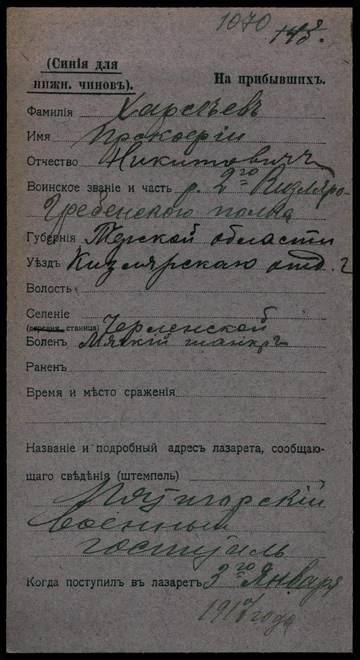 1070
(Синія для
нижн. чиновъ).
На прибывшихъ.
Фамилія Харсѣевъ
Имя Прокофій
Отчество Никитовичъ
Воинское званіе и часть р. 2го Кизляро
Гребенского полка
Губернія Терской области
Уѣздъ Кизлярскаго отд.
Волость
Селеніе
(деревня, станица) Червленской
Боленъ Мягкій шанкръ
Раненъ
Время и мѣсто сраженія
Названіе и подробный адресъ лазарета, сообщаю-
щаго свѣдѣнія (штемпель)
Пятигорскій
военный
госпиталь
Когда поступил въ лазаретъ 3го Января
1917 года